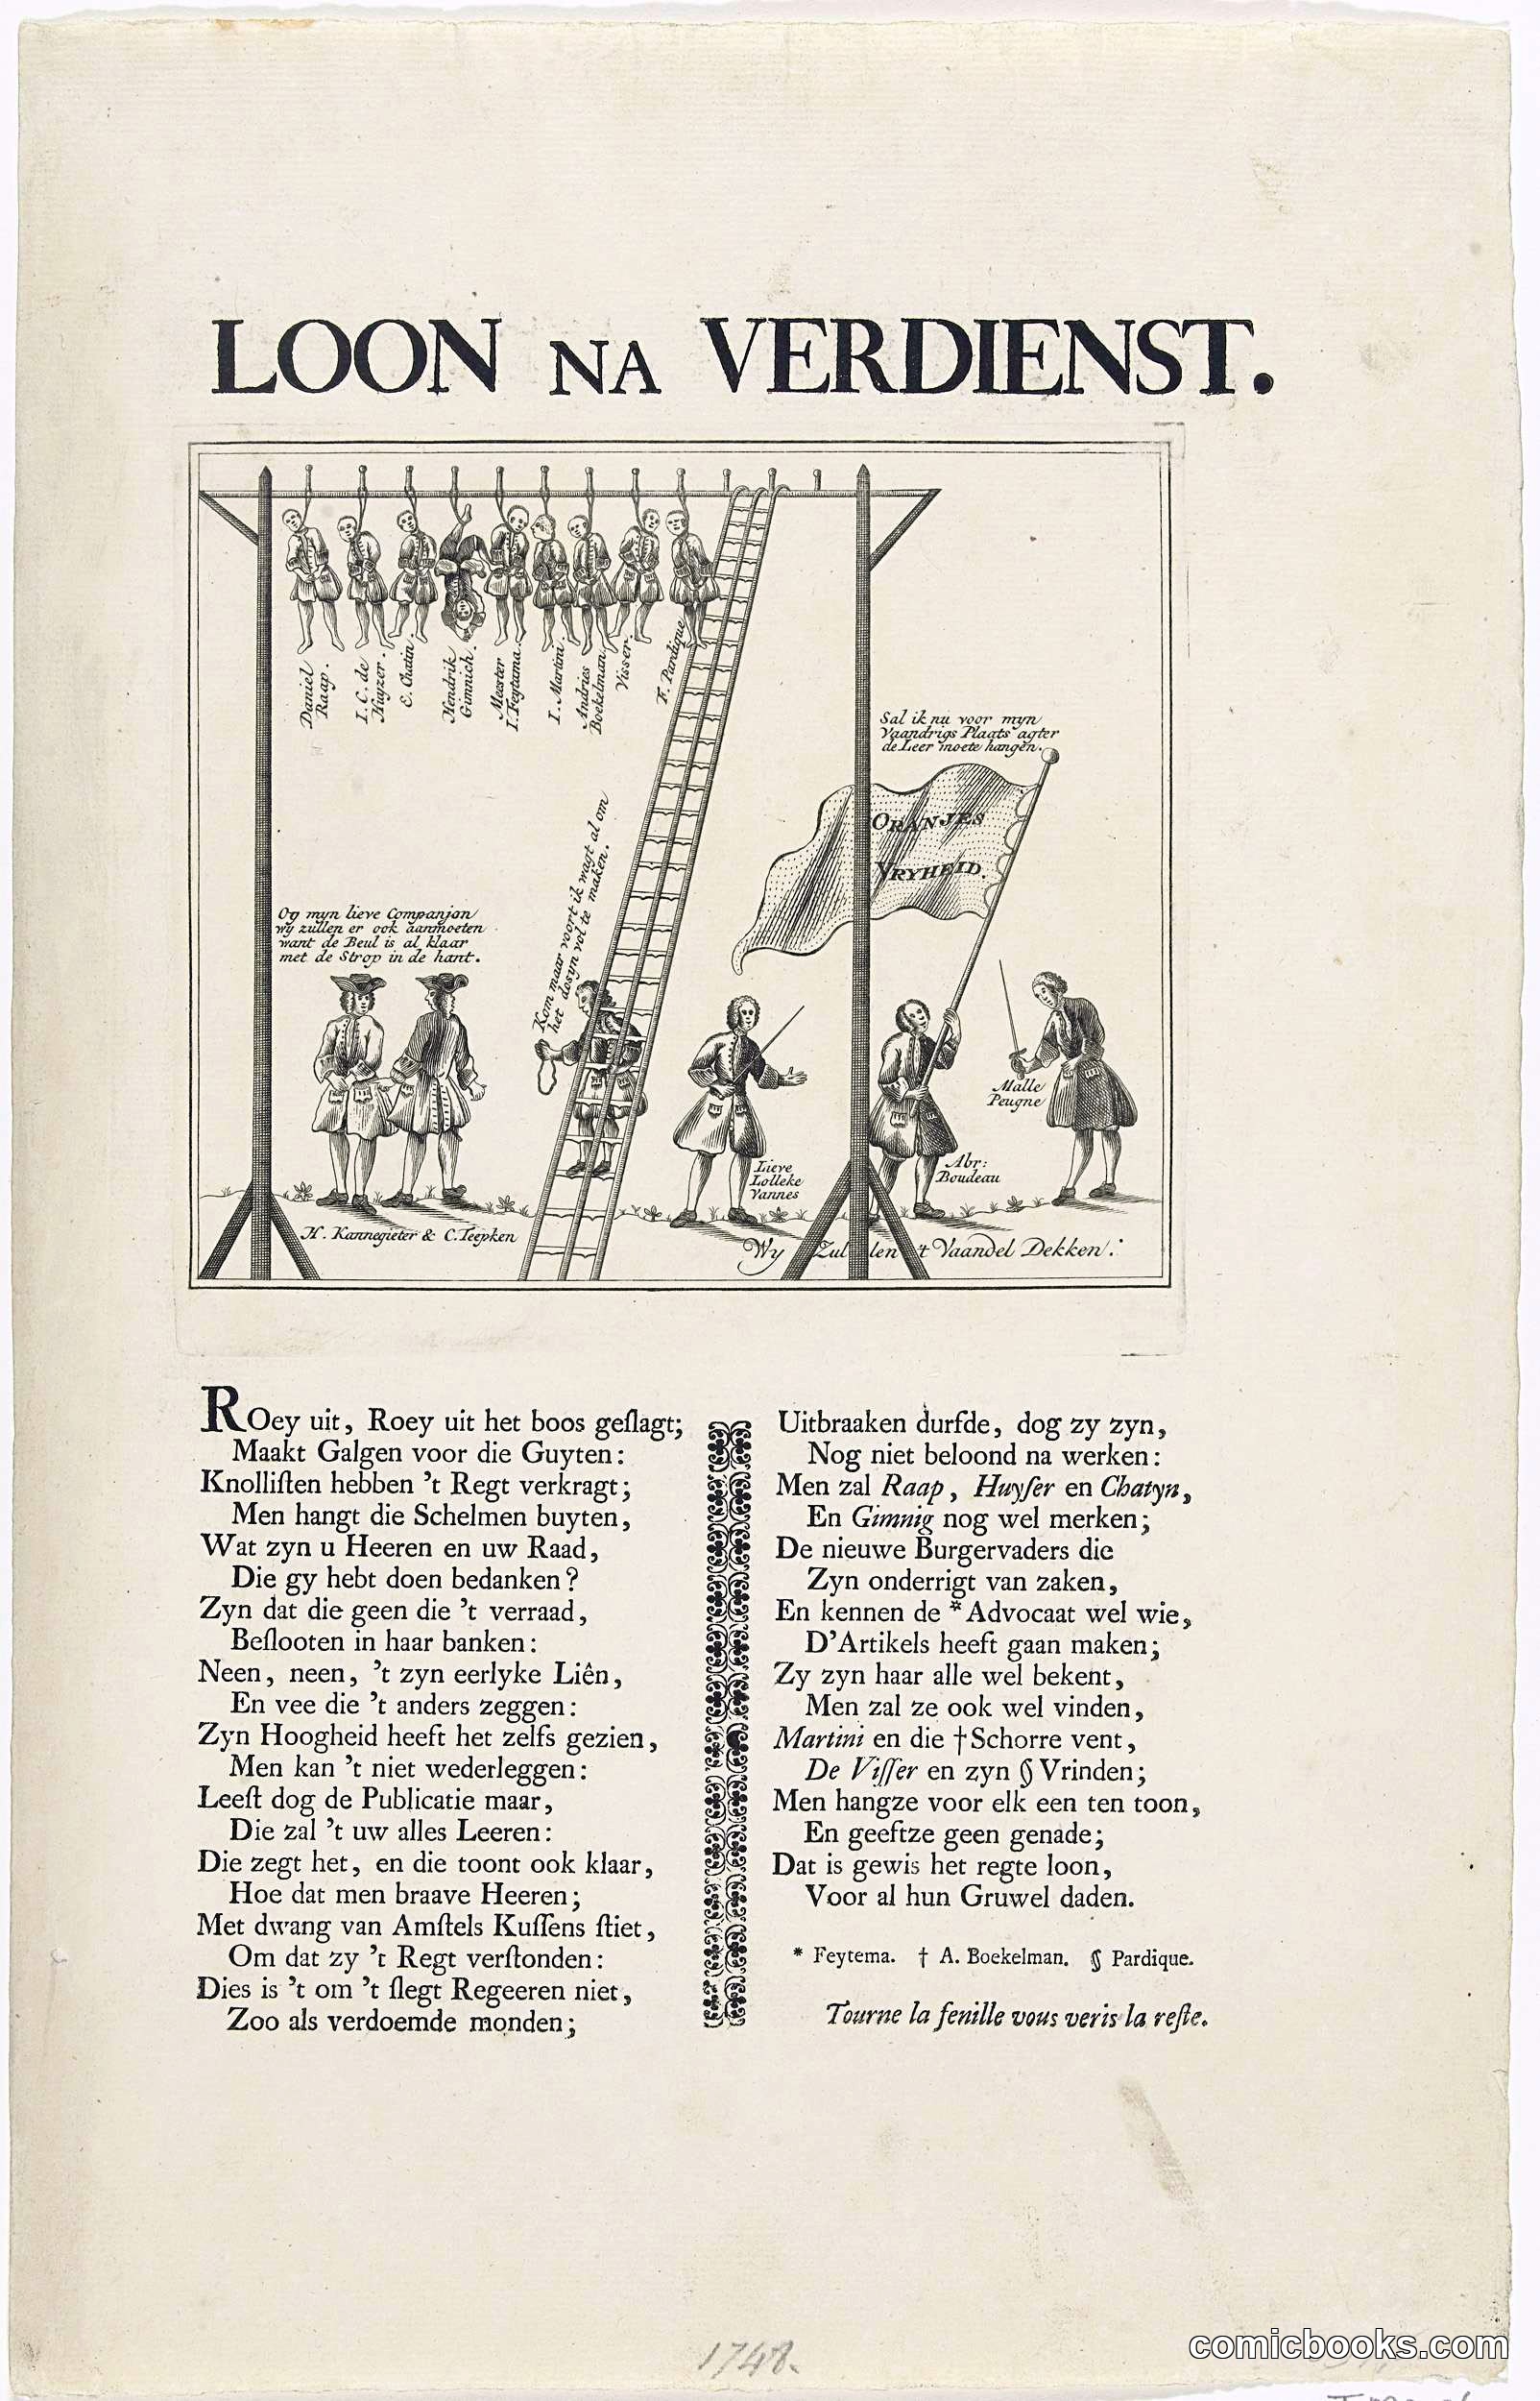 LOON NA VERDIENST.
Daniel
Raap.
I. C. de
Huyzer.
E. Chatin.
Hendrik
Gimnich.
Meester
I. Feytama.
I. Martini.
Andries
Boekelman
Visser.
F. Pardique
Sal ik nu voor myn
Vaandrigs Plaats agter
de Leer moete hangen.
ORANJES
VRYHEID.
Kom maar voort ik wagt al om
het dosyn vol te maken.
Og myn lieve Companjon
wy zullen er ook aanmoeten
want de Beul is al klaar
met de Strop in de hant.
Malle
Peugne
Lieve
Lolleke
Vannes
Abr:
Boudeau
H. Kannegieter & C. Teepken
Wy Zullen 't Vaandel Dekken.
ROey uit, Roey uit het boos geſlagt;
Maakt Galgen voor die Guyten:
Knolliſten hebben 't Regt verkragt;
Men hangt die Schelmen buyten,
Wat zyn u Heeren en uw Raad,
Die gy hebt doen bedanken?
Zyn dat die geen die 't verraad,
Beſlooten in haar banken:
Neen, neen, 't zyn eerlyke Liên,
En vee die 't anders zeggen:
Zyn Hoogheid heeft het zelfs gezien,
Men kan 't niet wederleggen:
Leeſt dog de Publicatie maar,
Die zal 't uw alles Leeren:
Die zegt het, en die toont ook klaar,
Hoe dat men braave Heeren;
Met dwang van Amſtels Kuſſens ſtiet,
Om dat zy 't Regt verſtonden:
Dies is 't om 't ſlegt Regeeren niet,
Zoo als verdoemde monden;
Uitbraaken durfde, dog zy zyn,
Nog niet beloond na werken:
Men zal Raap, Huyſer en Chatyn,
En Gimnig nog wel merken;
De nieuwe Burgervaders die
Zyn onderrigt van zaken,
En kennen de * Advocaat wel wie,
D'Artikels heeft gaan maken;
Zy zyn haar alle wel bekent,
Men zal ze ook wel vinden,
Martini en die † Schorre vent,
De Viſſer en zyn § Vrinden;
Men hangze voor elk een ten toon,
En geeftze geen genade;
Dat is gewis het regte loon,
Voor al hun Gruwel daden.
* Feytema. † A. Boekelman. § Pardique.
Tourne la fenille vous veris la reſte.
1748.
comicbooks.com